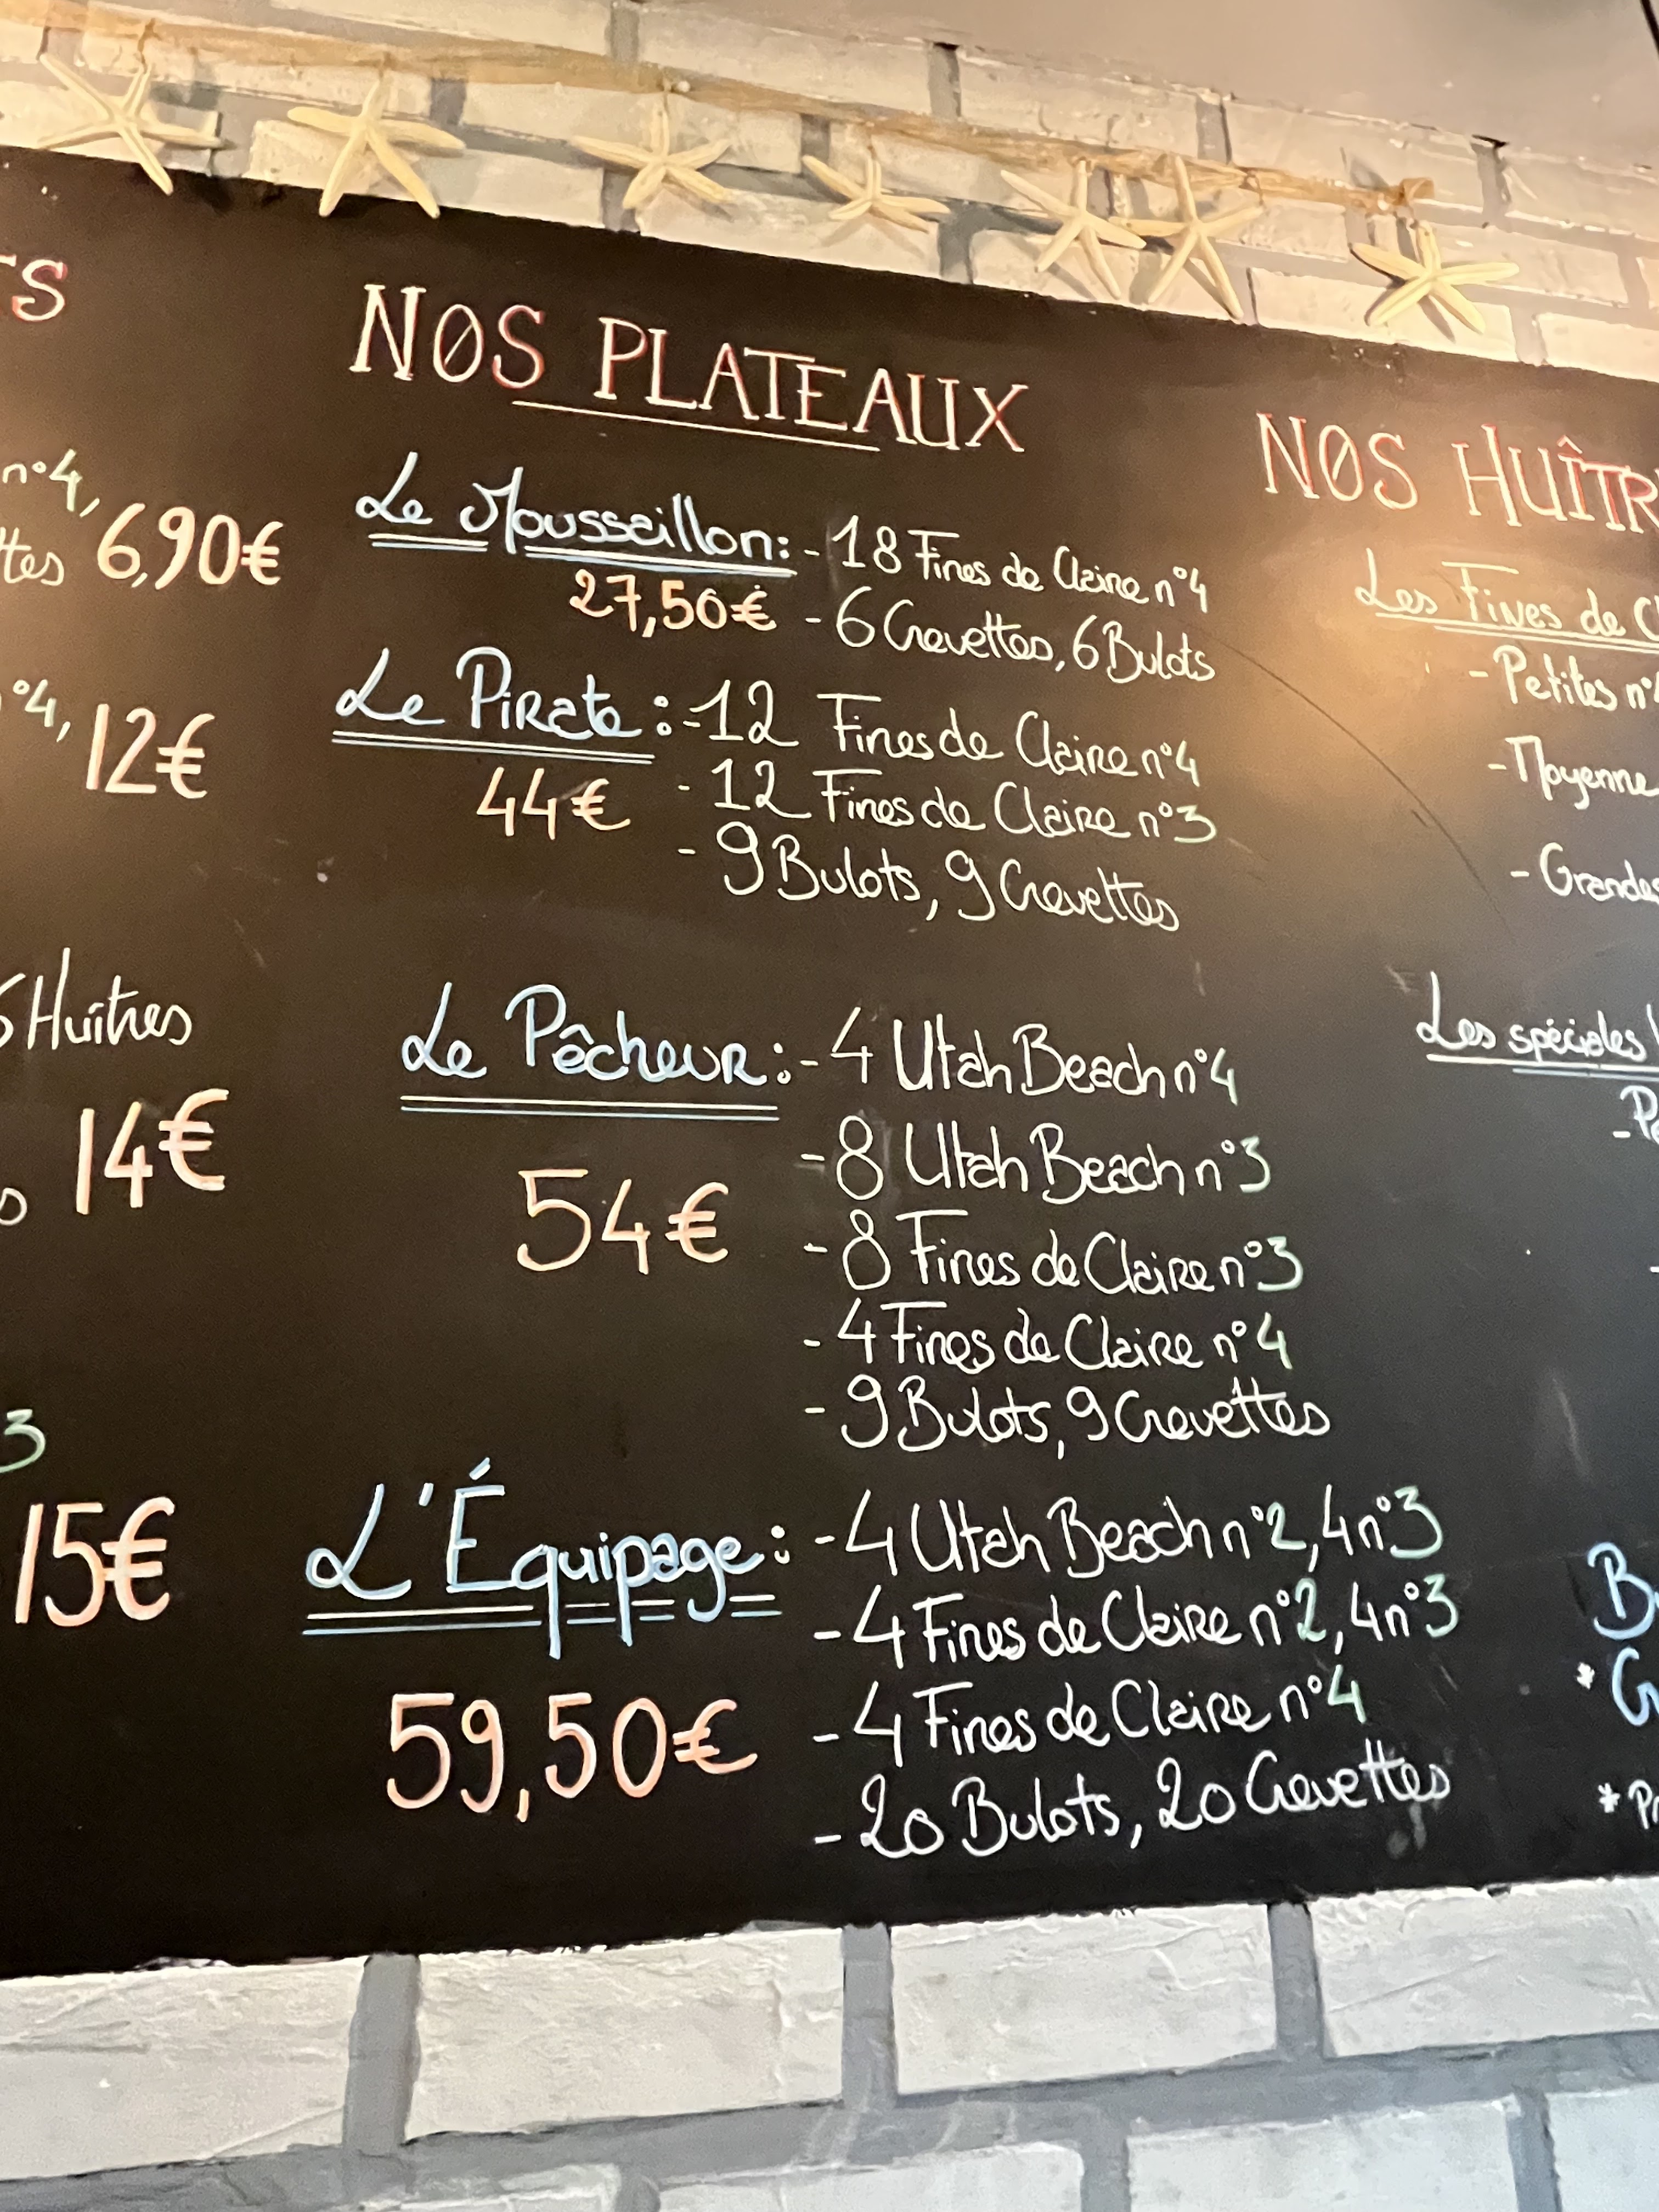 TS
n°4,
ttes 6,90€
n°4,
12€
6 Huîtres
14€
3
15€
NOS PLATEAUX
Le Moussaillon: - 18 Fines de Claire n°4
27,50€ - 6 Crevettes, 6 Bulots
Le Pirate : - 12 Fines de Claire n°4
44€ - 12 Fines de Claire n°3
- 9 Bulots, 9 Crevettes
Le Pêcheur : - 4 Utah Beach n°4
- 8 Utah Beach n°3
54€ - 8 Fines de Claire n°3
- 4 Fines de Claire n°4
- 9 Bulots, 9 Crevettes
L'Équipage : - 4 Utah Beach n°2, 4 n°3
- 4 Fines de Claire n°2, 4 n°3
59,50€ - 4 Fines de Claire n°4
- 20 Bulots, 20 Crevettes
NOS HUÎTR
Les Fines de Cl
- Petites n°
- Moyenne
- Grandes
Les spéciales
- Pe
B
* C
* Pr